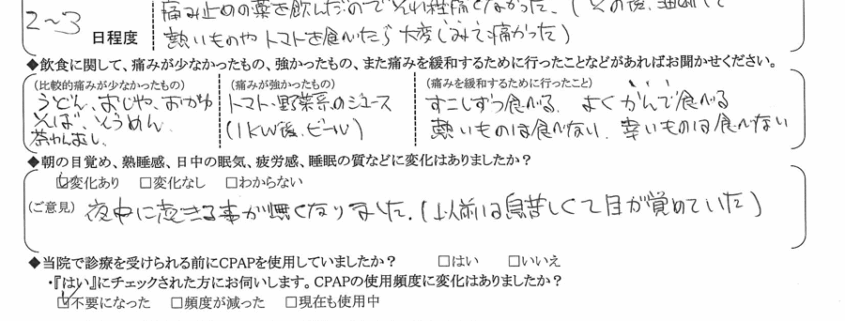 痛み止めの薬を飲んだのでそれ程痛くなかった。(その後、
2～3 日程度 熱いものやトマトを食べたら大変しみて痛かった)
◆飲食に関して、痛みが少なかったもの、強かったもの、また痛みを緩和するために行ったことなどがあればお聞かせください。
(比較的痛みが少なかったもの) (痛みが強かったもの) (痛みを緩和するために行ったこと)
うどん、おじや、おかゆ トマト・野菜系のジュース すこしずつ食べる よくかんで食べる
そば、そうめん (1KW後、ビール) 熱いものは食べない、辛いものは食べない
茶わんむし、
◆朝の目覚め、熟睡感、日中の眠気、疲労感、睡眠の質などに変化はありましたか?
☑変化あり □変化なし □わからない
(ご意見) 夜中に起きる事が無くなりました。(以前は息苦しくて目が覚めていた)
◆当院で診療を受けられる前にCPAPを使用していましたか? □はい □いいえ
・『はい』にチェックされた方にお伺いします。CPAPの使用頻度に変化はありましたか?
☑不要になった □頻度が減った □現在も使用中